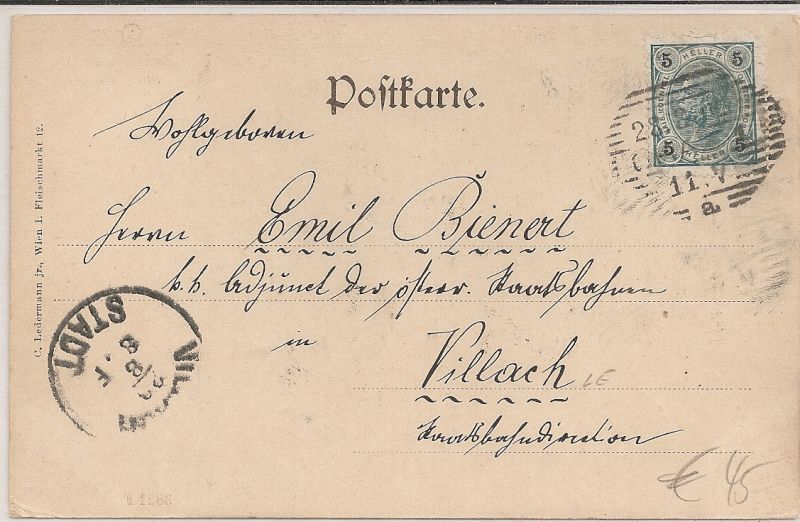 Postkarte.
5 HELLER 5
5 HELLER 5
28
11.V
a
Wohlgeboren
Herrn Emil Bienert
k. k. Adjunct der österr. Staatsbahnen
in
Villach
Staatsbahndirection
C. Ledermann jr., Wien I. Fleischmarkt 12.
STADT
8
F
LE
€ 45